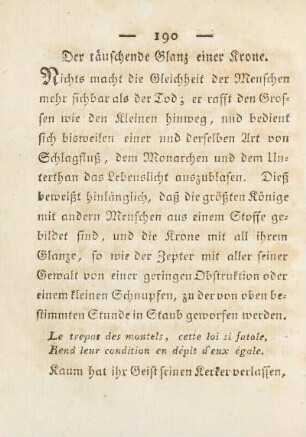 — 190 —
Der täuschende Glanz einer Krone.
Nichts macht die Gleichheit der Menschen
mehr sichbar als der Tod; er rafft den Gros-
sen wie den Kleinen hinweg, und bedient
sich bisweilen einer und derselben Art von
Schlagfluß, dem Monarchen und dem Un-
terthan das Lebenslicht auszublasen. Dieß
beweißt hinlänglich, daß die größten Könige
mit andern Menschen aus einem Stoffe ge-
bildet sind, und die Krone mit all ihrem
Glanze, so wie der Zepter mit aller seiner
Gewalt von einer geringen Obstruktion oder
einem kleinen Schnupfen, zu der von oben be-
stimmten Stunde in Staub geworfen werden.
Le trepas des montels, cette loi si fatale,
Rend leur condition en dépit d'eux égale.
Kaum hat ihr Geist seinen Kerker verlassen,